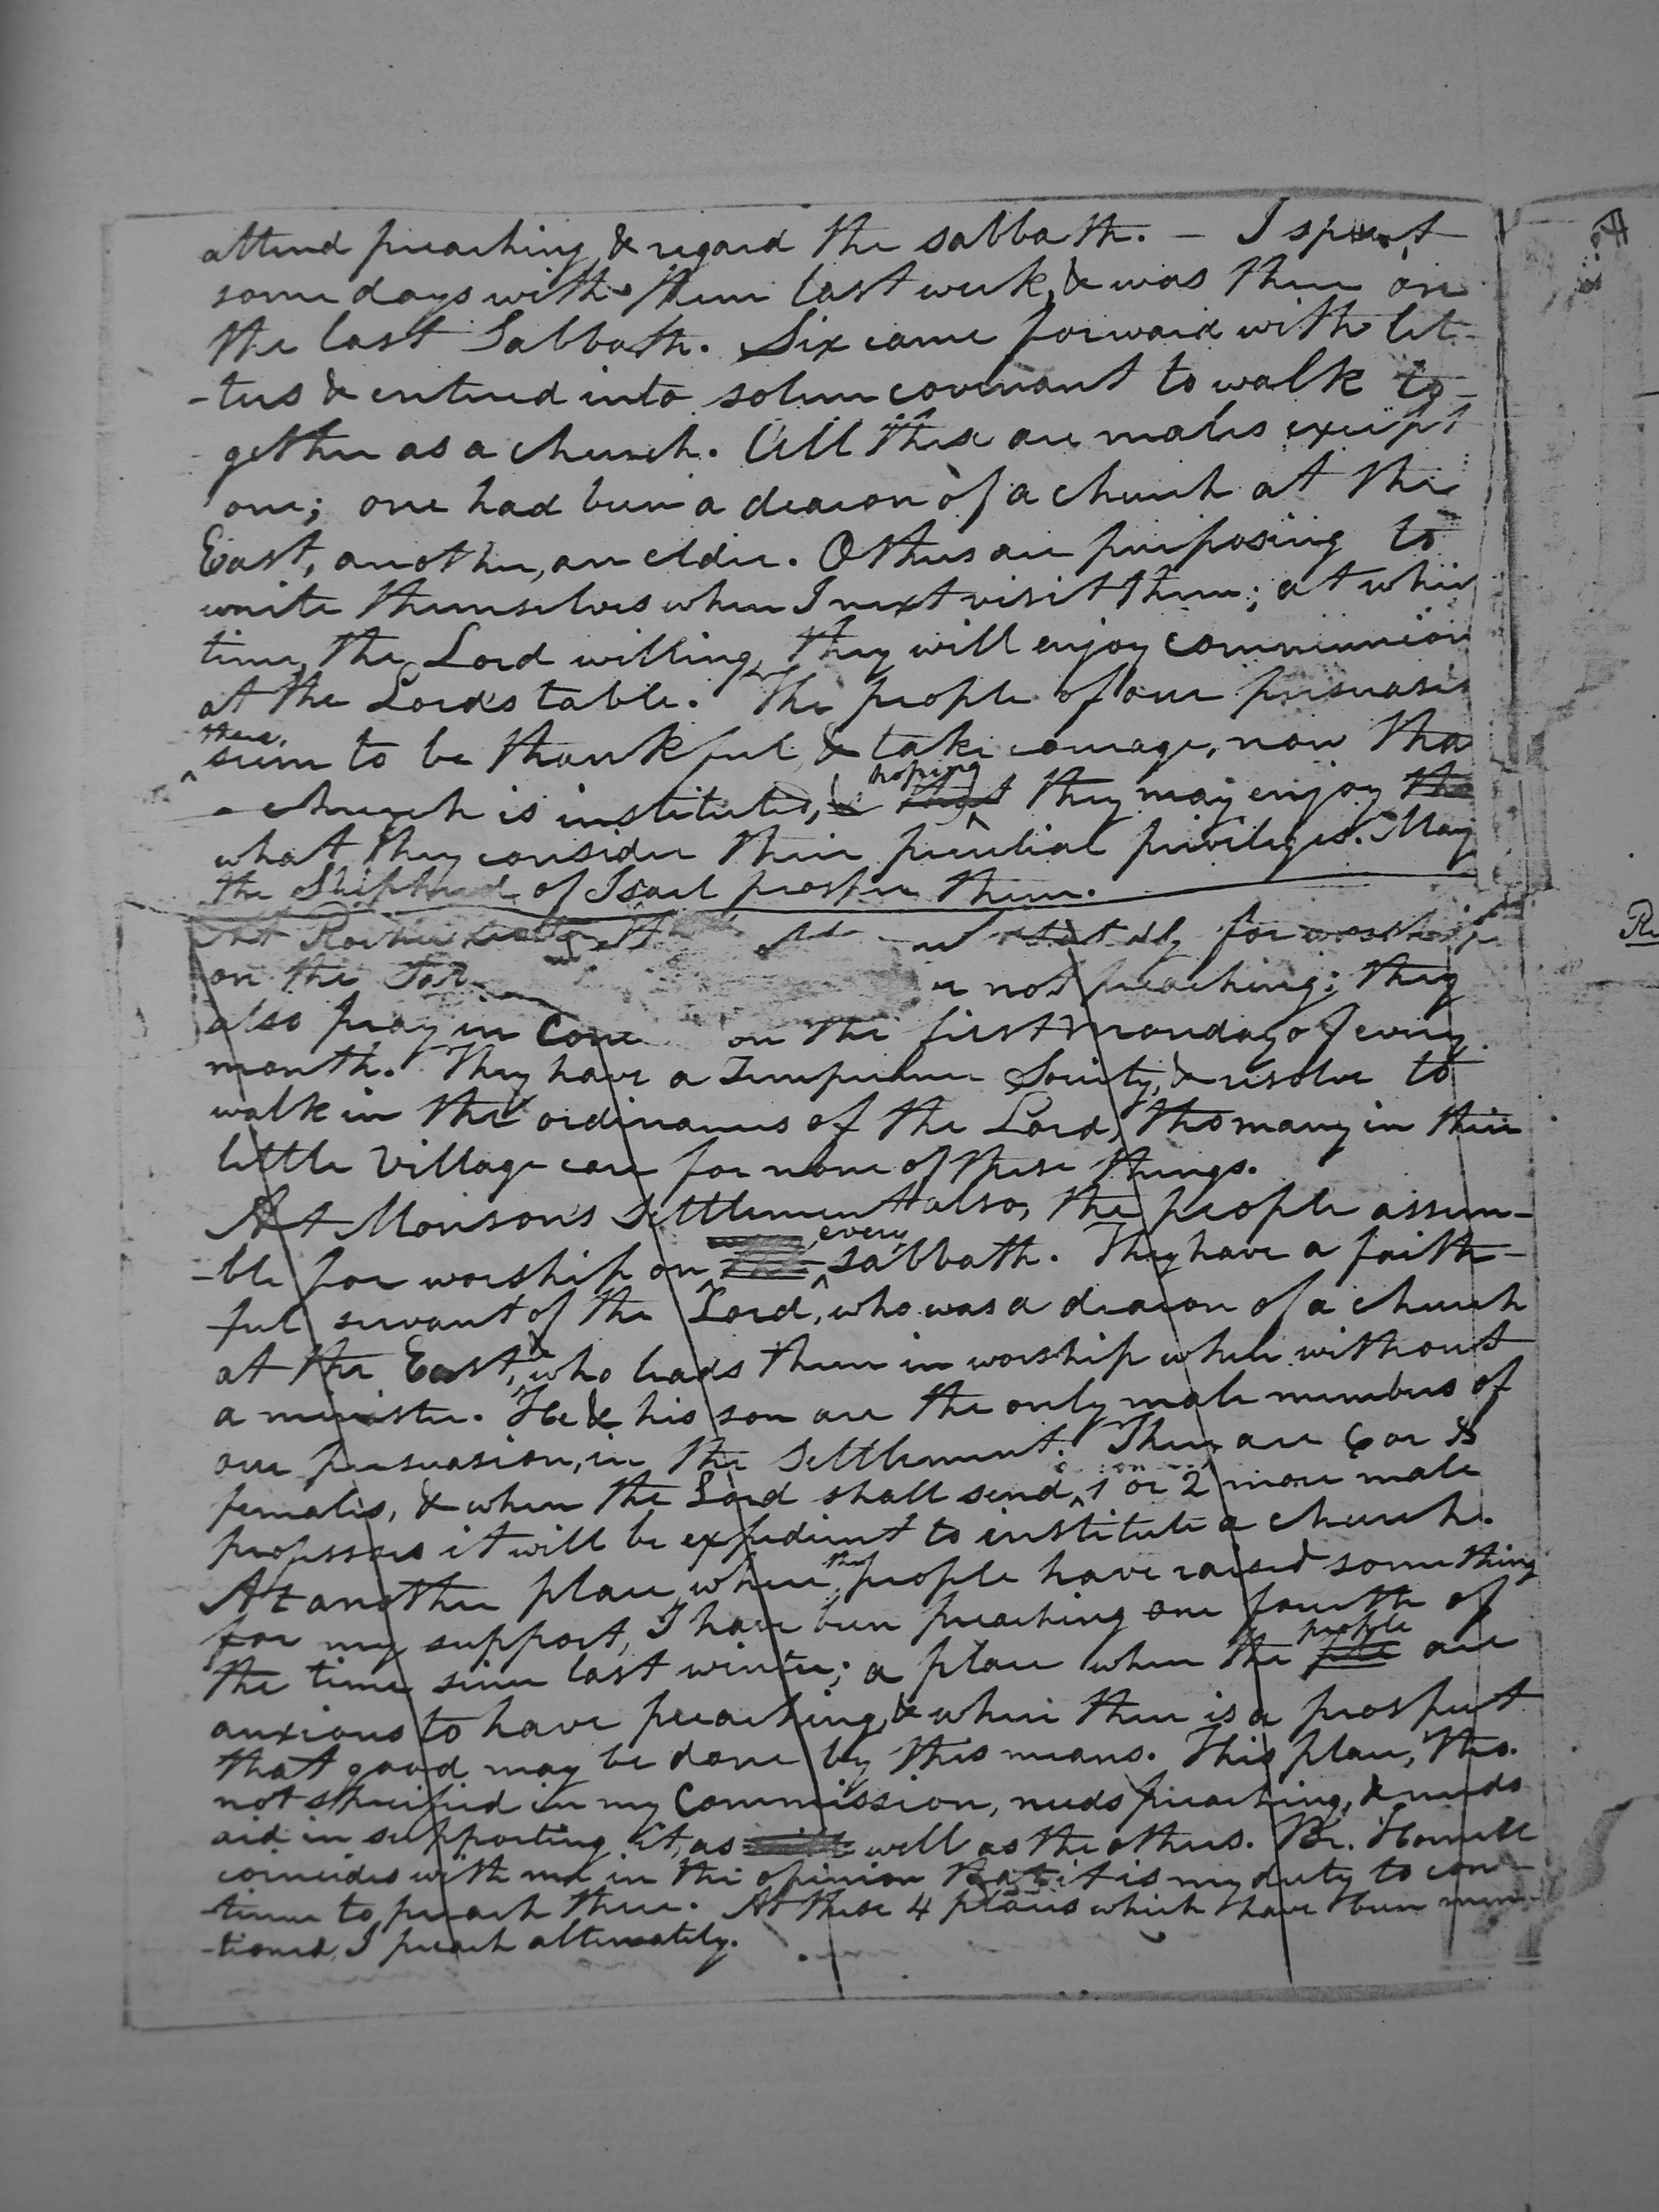 attend preaching, & regard the sabbath. - I spent
some days with them last week, & was there on
the last Sabbath. Six came forward with let-
-ters & entered into solemn covenant to walk to-
gether as a church. All these are males except
one; one had been a deacon of a church at the
East, another, an elder. Others are purposing to
unite themselves when I next visit them; at whic
time, the Lord willing, they will enjoy communion
at the Lord's table. The people of our persuasi
there,
seem to be thankful, & take courage, now tha
hoping
a church is instituted, & that they may enjoy the
what they consider their peculiar privileges. May
the Shepherd of Israel prosper them.
At for worship
on the not preaching; they
also pray in Conc on the first monday of every
month. They have a Temperance Society, & resolve to
walk in the ordinances of the Lord, tho many in their
little Village care for none of these things.
At Monson's Settlement also, the people assem-
every
-ble for worship on sabbath. They have a faith-
-ful servant of the Lord, who was a deacon of a church
&
at the East, who leads them in worship when without
a minister. He & his son are the only male members of
our persuasion, in the Settlement. There are 6 or 8
females, & when the Lord shall send 1 or 2 more male
professors it will be expedient to institute a church.
the
At another place where people have raised something
for my support, I have been preaching one fourth of
people
the time since last winter; a place where the are
anxious to have preaching, & where there is a prospect
that good may be done by this means. This place, tho.
not specified in my Commission, needs preaching, & needs
aid in supporting it, as well as the others. Br. Howell
coincides with me in the opinion that it is my duty to con-
-tinue to preach there. At these 4 places which have been men-
-tioned, I preach alternately.